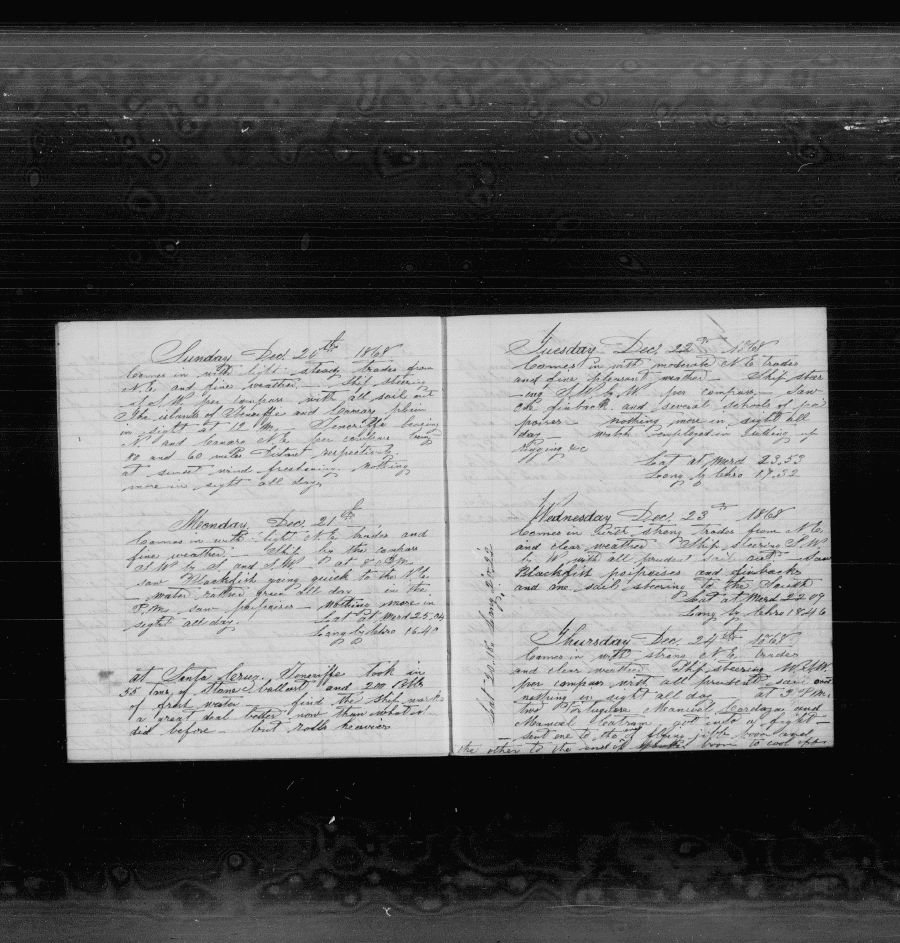 Sunday Dec. 20th 1868
Comes in with light steady trades from
N.E. and fine weather — Ship steering
S.W. per compass with all sail out
The islands of Teneriffe and Canary plain
in sight at 12 M. Teneriffe bearing
N. and Canary N.E. per compass being
80 and 60 miles distant respectively
at sunset wind freshening nothing
more in sight all day
Monday Dec. 21st
Comes in with light N.E. trades and
fine weather — Ship by the compass
S.W. by S. and S.W. at 8 P.M.
saw Blackfish going quick to the
— water rather green all day — in the
P.M. saw porpoises — nothing more in
sight all day. Lat at Merd 25.04
Long by Chro 16.40
at Santa Cruz, Teneriffe took in
35 tons of stone ballast and 200 Bbls
of fresh water — find the ship works
a great deal better now than what it
did before — but rolls heavier
Tuesday Dec. 22nd 1868
Comes in with moderate N.E. trades
and fine pleasant weather — Ship steer
-ing S.W. by W. per compass — Saw
one finback and several schools of por
poises — nothing more in sight all
day — watch employed in
rigging &c
Lat at Merd 23.53
Long by Chro 17.32
Wednesday Dec. 23rd 1868
Comes in with strong trades from N.E.
and clear weather Ship steering S.W.
by W. with all prudent sail out saw
Blackfish porpoises and finbacks
and one sail steering to the South
Lat at Merd 22.09
Long by Chro 18.46
Thursday Dec. 24th 1868
Comes in with strong N.E. trades
and clear weather Ship steering
per compass with all prudent sail out
nothing in sight all day — at 9 P.M.
two Portuguese Manuel and
Manuel got into a fight —
— sent one to the end of flying jibb boom and
the other to the end of boom to cool off
Lat 20.18 Long 20.22